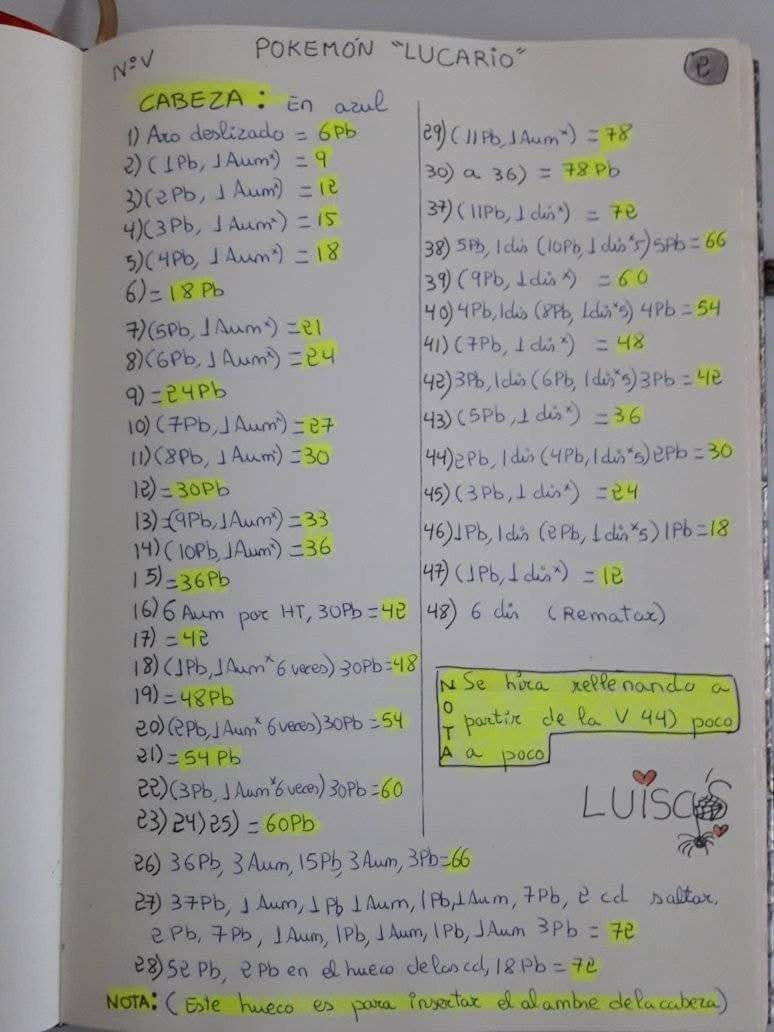 NºV
POKEMÓN "LUCARIO"
2
CABEZA: En azul
1) Aro deslizado = 6Pb
2) (1Pb, 1Aum*) = 9
3) (2Pb, 1Aum*) = 12
4) (3Pb, 1Aum*) = 15
5) (4Pb, 1Aum*) = 18
6) = 18Pb
7) (5Pb, 1Aum*) = 21
8) (6Pb, 1Aum*) = 24
9) = 24Pb
10) (7Pb, 1Aum*) = 27
11) (8Pb, 1Aum*) = 30
12) = 30Pb
13) = (9Pb, 1Aum*) = 33
14) (10Pb, 1Aum*) = 36
15) = 36Pb
16) 6 Aum por HT, 30Pb = 42
17) = 42
18) (1Pb, 1Aum* 6 veces) 30Pb = 48
19) = 48Pb
20) (2Pb, 1Aum* 6 veces) 30Pb = 54
21) = 54Pb
22) (3Pb, 1Aum* 6 veces) 30Pb = 60
23) 24) 25) = 60Pb
29) (11Pb, 1Aum*) = 78
30) a 36) = 78Pb
37) (11Pb, 1dis*) = 72
38) 5Pb, 1dis (10Pb, 1dis*5) 5Pb = 66
39) (9Pb, 1dis*) = 60
40) 4Pb, 1dis (8Pb, 1dis*5) 4Pb = 54
41) (7Pb, 1dis*) = 48
42) 3Pb, 1dis (6Pb, 1dis*5) 3Pb = 42
43) (5Pb, 1dis*) = 36
44) 2Pb, 1dis (4Pb, 1dis*5) 2Pb = 30
45) (3Pb, 1dis*) = 24
46) 1Pb, 1dis (2Pb, 1dis*5) 1Pb = 18
47) (1Pb, 1dis*) = 12
48) 6 dis (Rematar)
NOTA
Se hira rellenando a
partir de la V 44) poco
a poco
LUISCA'S
26) 36Pb, 3Aum, 15Pb, 3Aum, 3Pb = 66
27) 37Pb, 1Aum, 1Pb, 1Aum, 1Pb, 1Aum, 7Pb, 2 cd saltar,
2Pb, 7Pb, 1Aum, 1Pb, 1Aum, 1Pb, 1Aum 3Pb = 72
28) 52Pb, 2Pb en el hueco de los cd, 18Pb = 72
NOTA: (Este hueco es para insertar el alambre de la cabeza)